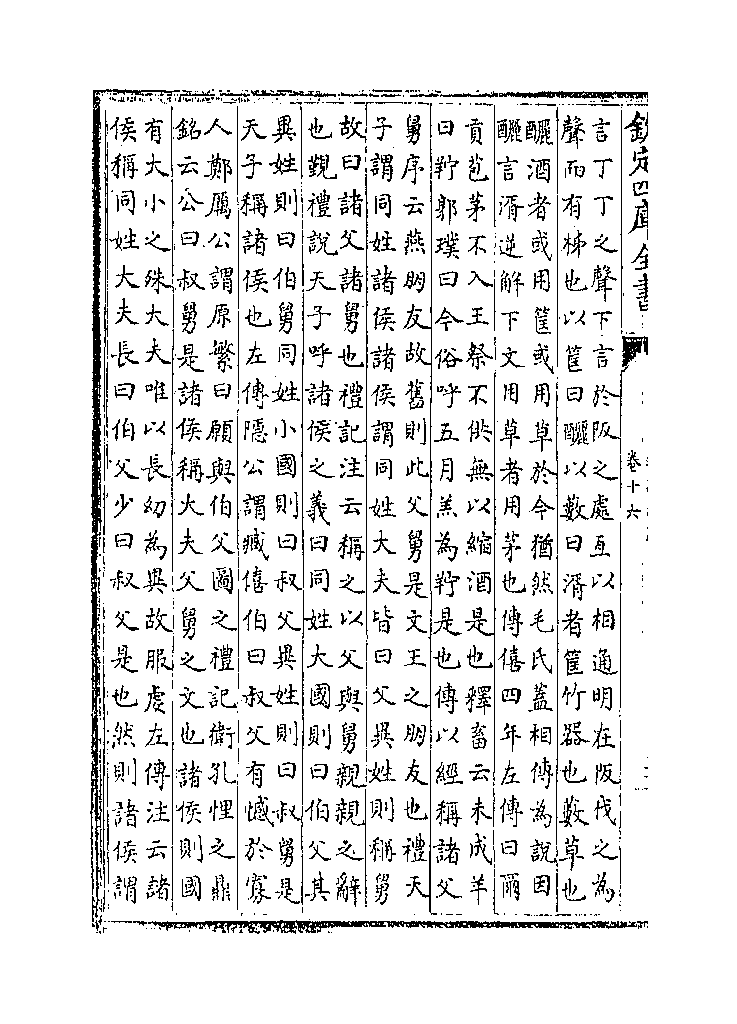 欽定四庫全書
卷十六
言丁丁之聲下言於阪之處互以相通明在阪伐之為
聲而有杮也以筐曰釃以藪曰湑者筐竹器也藪草也
釃酒者或用筐或用草於今猶然毛氏蓋相傳為說因
釃言湑逆解下文用草者用茅也傳僖四年左傳曰爾
貢苞茅不入王祭不供無以縮酒是也釋畜云未成羊
曰羜郭璞曰今俗呼五月羔為羜是也傳以經稱諸父
舅序云燕朋友故舊則此父舅是文王之朋友也禮天
子謂同姓諸侯諸侯謂同姓大夫皆曰父異姓則稱舅
故曰諸父諸舅也禮記注云稱之以父與舅親親之辭
也覲禮說天子呼諸侯之義曰同姓大國則曰伯父其
異姓則曰伯舅同姓小國則曰叔父異姓則曰叔舅是
天子稱諸侯也左傳隱公謂臧僖伯曰叔父有憾於寡
人鄭厲公謂原繁曰願與伯父圖之禮記衛孔悝之鼎
銘云公曰叔舅是諸侯稱大夫父舅之文也諸侯則國
有大小之殊大夫唯以長幼為異故服虔左傳注云諸
侯稱同姓大夫長曰伯父少曰叔父是也然則諸侯謂